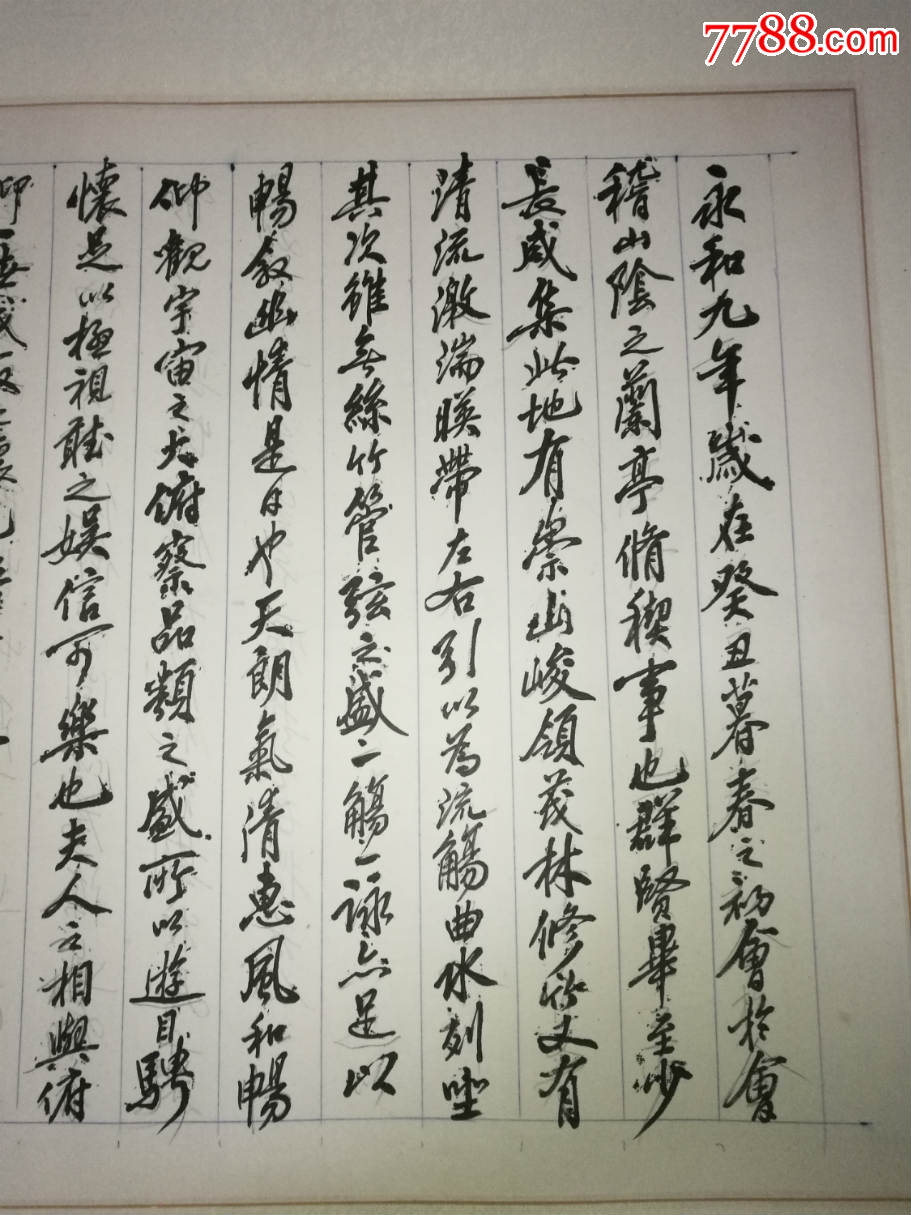 7788.com
永和九年歲在癸丑暮春之初會於會
稽山陰之蘭亭脩稧事也群賢畢至少
長咸集此地有崇山峻領茂林修竹又有
清流激湍暎帶左右引以為流觴曲水列坐
其次雖無絲竹管弦之盛一觴一詠亦足以
暢敘幽情是日也天朗氣清惠風和暢
仰觀宇宙之大俯察品類之盛所以遊目騁
懷足以極視聽之娛信可樂也夫人之相與俯
仰一世或取諸懷抱